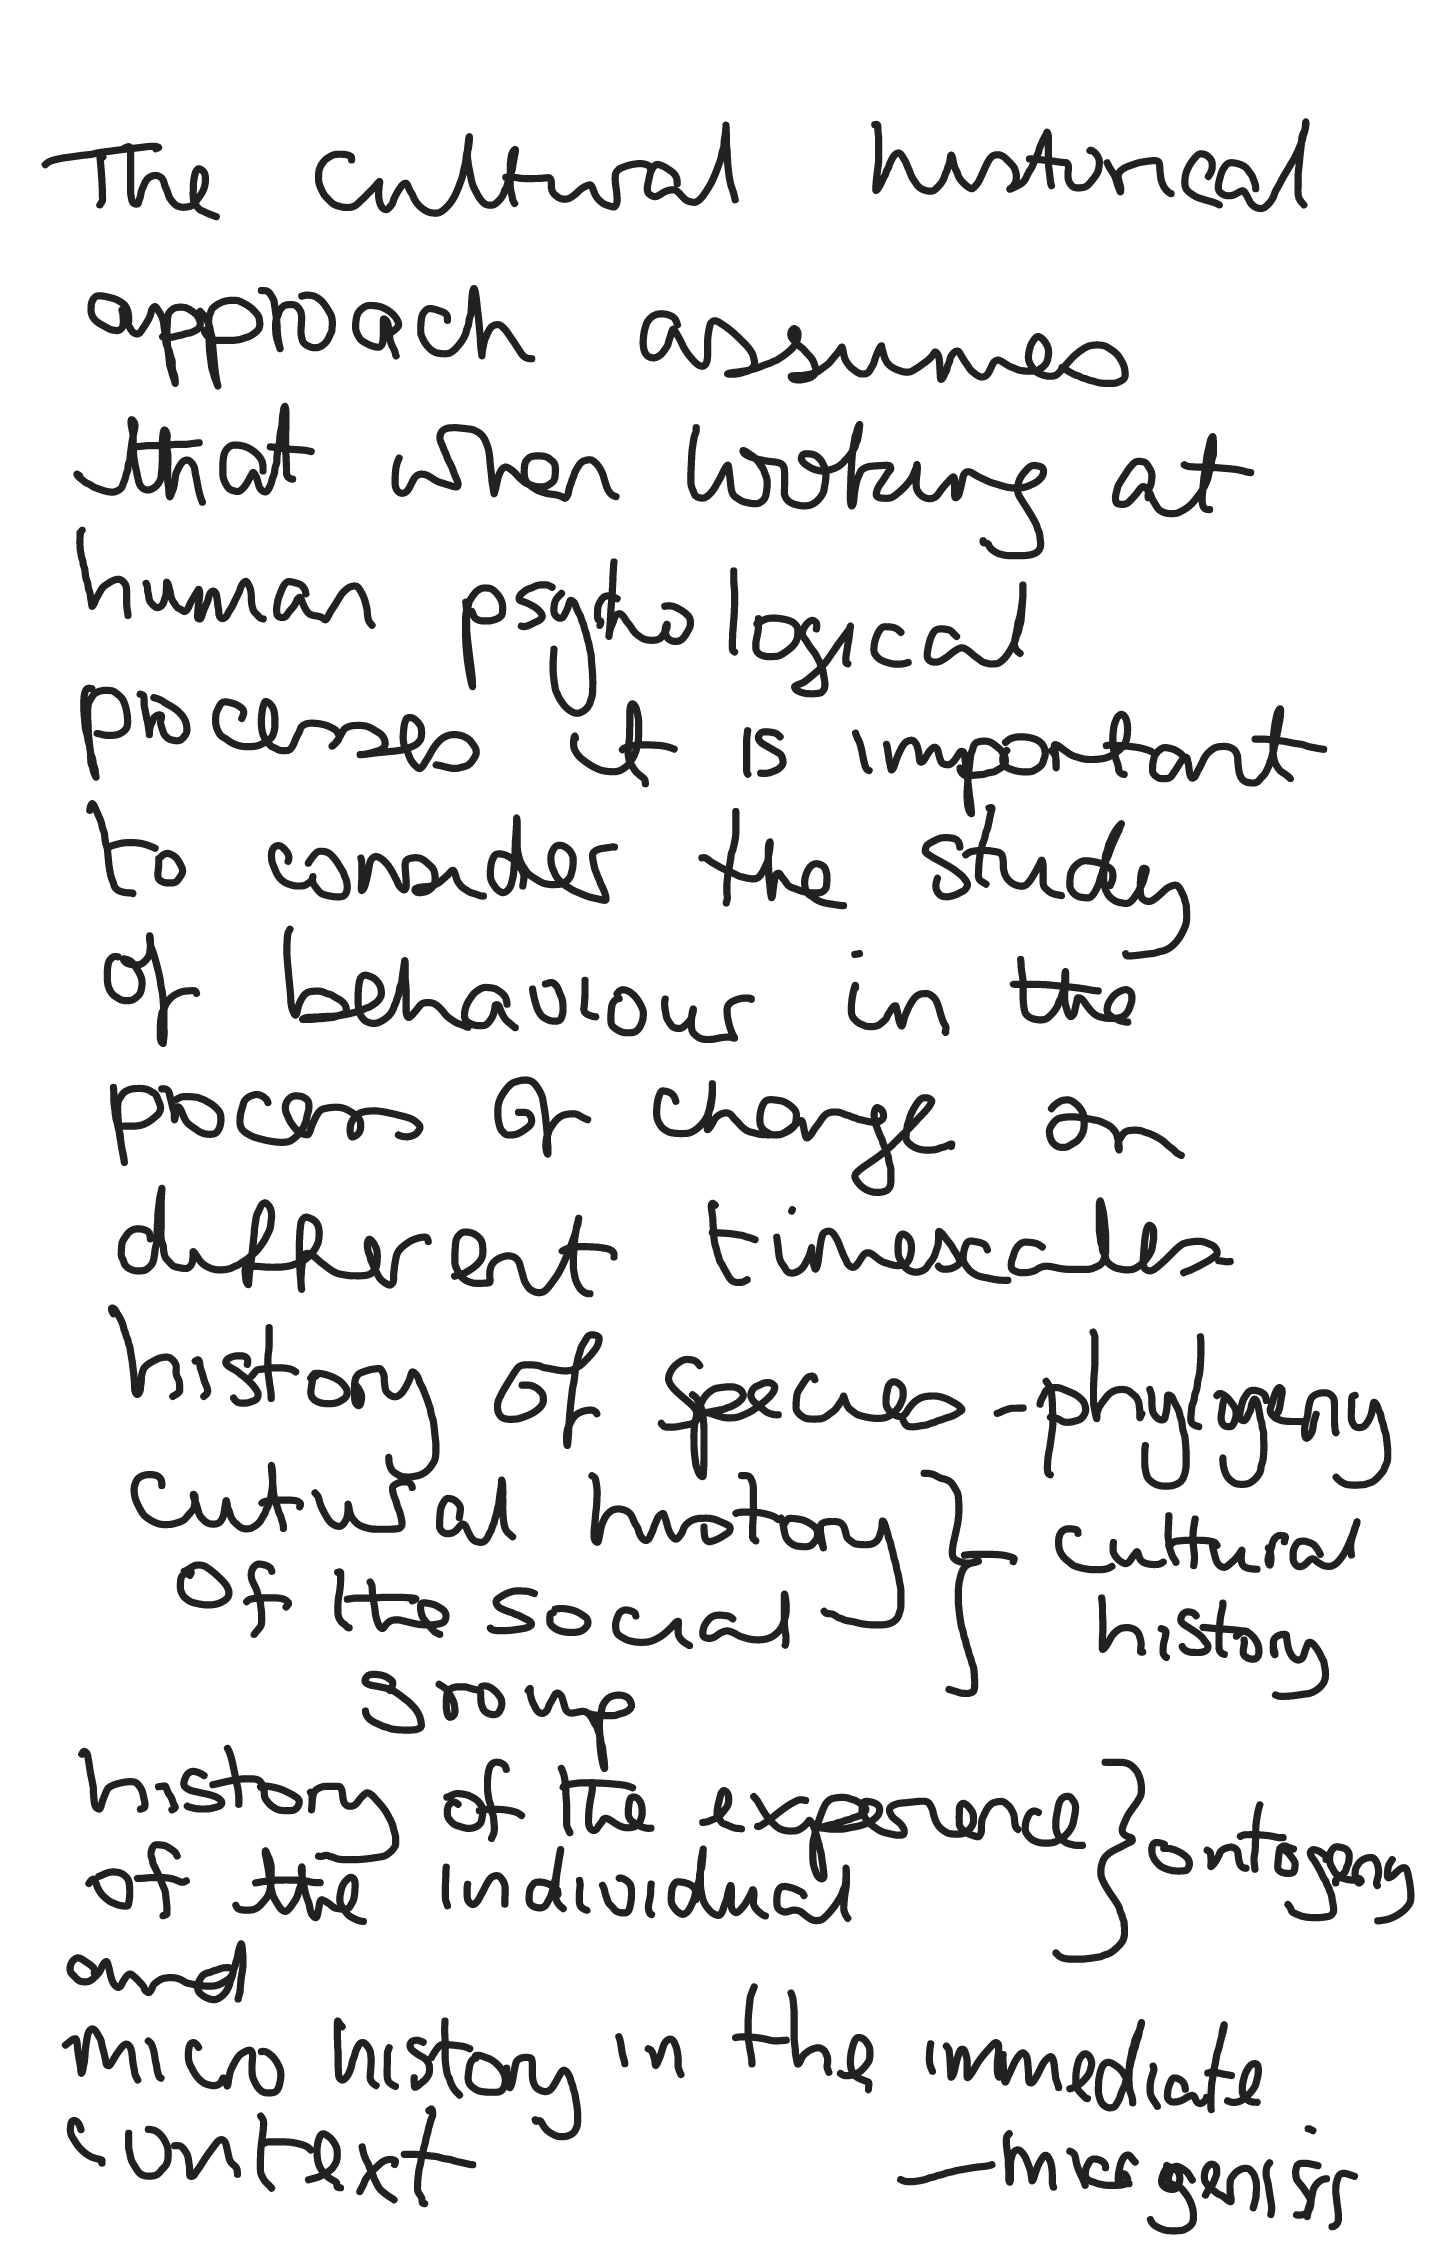 The cultural historical
approach assumes
that when looking at
human psychological
processes it is important
to consider the study
of behaviour in the
process of change on
different timescales
history of species - phylogeny
cutural history } - cultural
of the social history
group
history of the experience } ontogeny
of the individual
and
micro history in the immediate
context - microgenisis